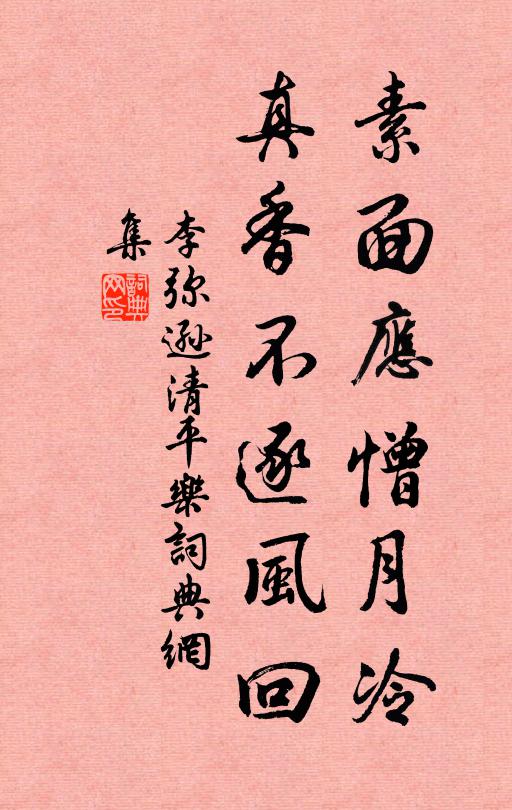 素面應憎月冷
真香不逐風回
李弥遜清平樂詞典網
集
詞典
网印